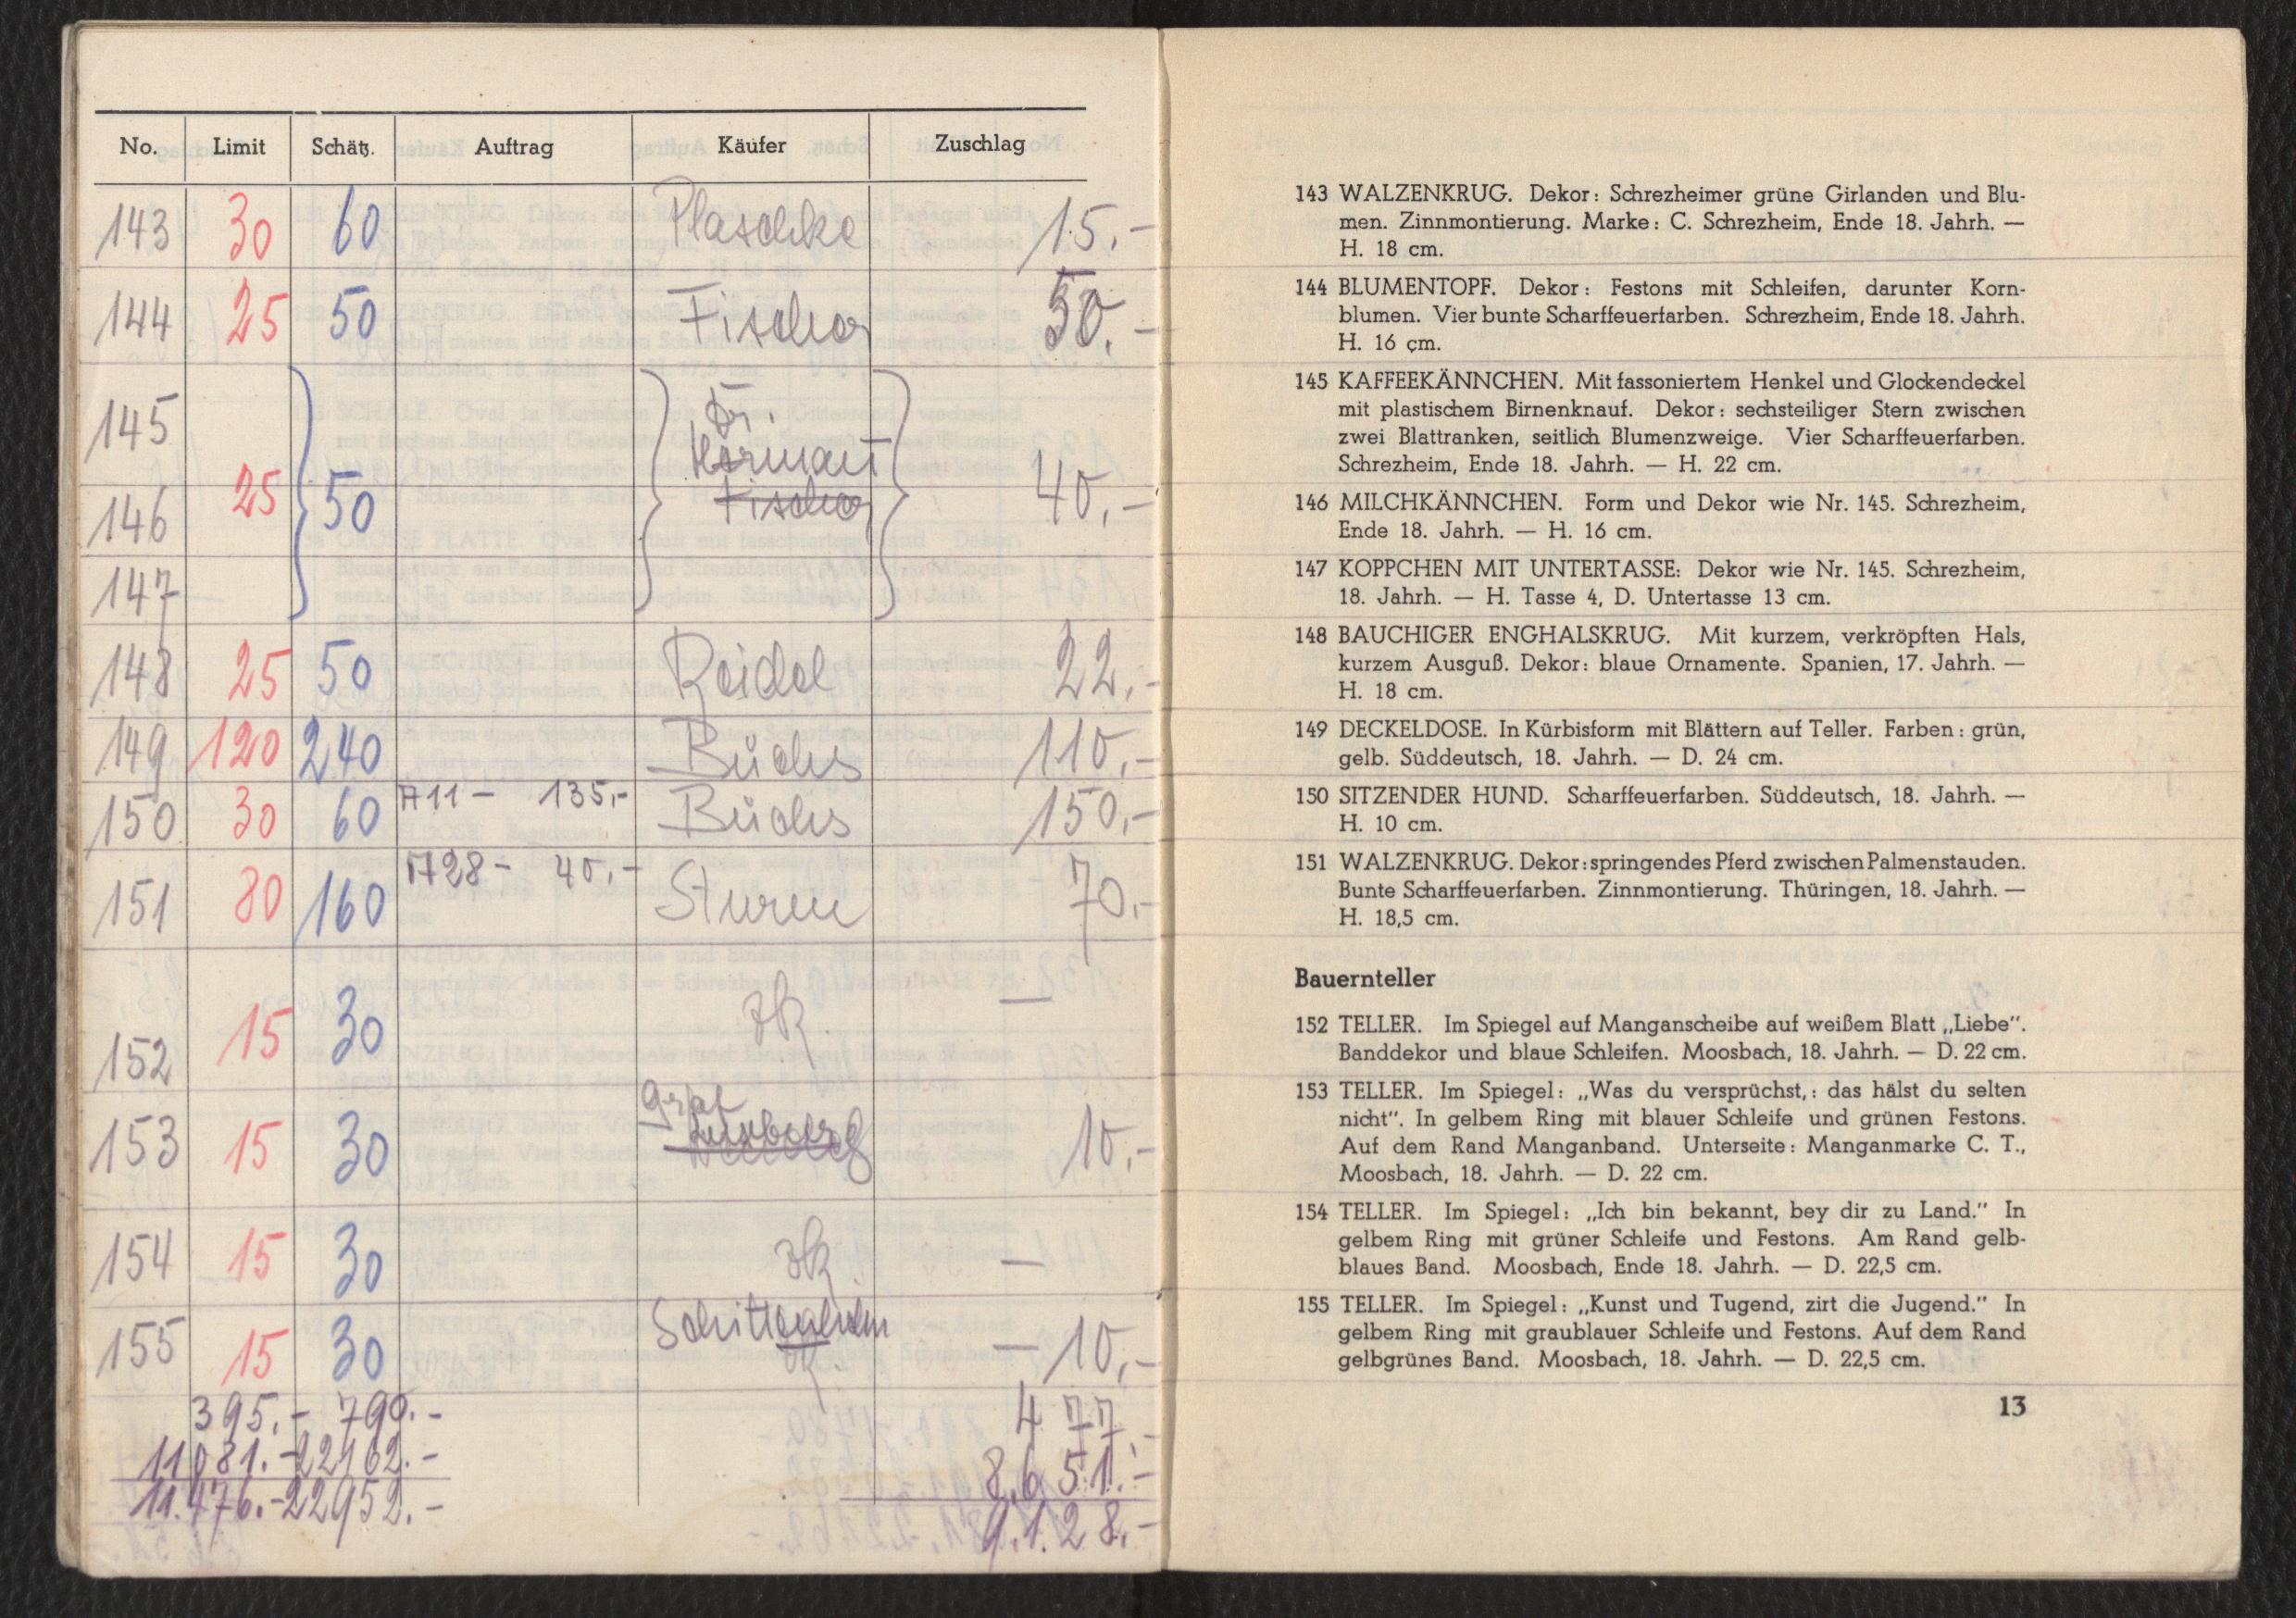 No. Limit Schätz. Auftrag Käufer Zuschlag
143 30 60 Plaschke 15.-
144 25 50 Fischer 50.-
145 Dr.
Hermann
146 25 50 Fischer 40.-
147
148 25 50 Reidel 22.-
149 120 240 Büchs 110.-
150 30 60 A11 - 135,- Büchs 150.-
151 80 160 A28 - 40,- Sturm 70.-
152 15 30 zk. —
153 15 30 Graf 10.-
154 15 30 zk. —
155 15 30 Schittenhelm — 10.-
395.- 790.- 477.-
11081.- 22162.- 8.651.-
11.476.- 22952.- 9.128.-
143 WALZENKRUG. Dekor: Schrezheimer grüne Girlanden und Blu-
men. Zinnmontierung. Marke: C. Schrezheim, Ende 18. Jahrh. —
H. 18 cm.
144 BLUMENTOPF. Dekor: Festons mit Schleifen, darunter Korn-
blumen. Vier bunte Scharffeuerfarben. Schrezheim, Ende 18. Jahrh.
H. 16 cm.
145 KAFFEEKÄNNCHEN. Mit fassoniertem Henkel und Glockendeckel
mit plastischem Birnenknauf. Dekor: sechsteiliger Stern zwischen
zwei Blattranken, seitlich Blumenzweige. Vier Scharffeuerfarben.
Schrezheim, Ende 18. Jahrh. — H. 22 cm.
146 MILCHKÄNNCHEN. Form und Dekor wie Nr. 145. Schrezheim,
Ende 18. Jahrh. — H. 16 cm.
147 KOPPCHEN MIT UNTERTASSE: Dekor wie Nr. 145. Schrezheim,
18. Jahrh. — H. Tasse 4, D. Untertasse 13 cm.
148 BAUCHIGER ENGHALSKRUG. Mit kurzem, verkröpften Hals,
kurzem Ausguß. Dekor: blaue Ornamente. Spanien, 17. Jahrh. —
H. 18 cm.
149 DECKELDOSE. In Kürbisform mit Blättern auf Teller. Farben: grün,
gelb. Süddeutsch, 18. Jahrh. — D. 24 cm.
150 SITZENDER HUND. Scharffeuerfarben. Süddeutsch, 18. Jahrh. —
H. 10 cm.
151 WALZENKRUG. Dekor: springendes Pferd zwischen Palmenstauden.
Bunte Scharffeuerfarben. Zinnmontierung. Thüringen, 18. Jahrh. —
H. 18,5 cm.
Bauernteller
152 TELLER. Im Spiegel auf Manganscheibe auf weißem Blatt „Liebe".
Banddekor und blaue Schleifen. Moosbach, 18. Jahrh. — D. 22 cm.
153 TELLER. Im Spiegel: „Was du versprüchst,: das hälst du selten
nicht". In gelbem Ring mit blauer Schleife und grünen Festons.
Auf dem Rand Manganband. Unterseite: Manganmarke C. T.,
Moosbach, 18. Jahrh. — D. 22 cm.
154 TELLER. Im Spiegel: „Ich bin bekannt, bey dir zu Land." In
gelbem Ring mit grüner Schleife und Festons. Am Rand gelb-
blaues Band. Moosbach, Ende 18. Jahrh. — D. 22,5 cm.
155 TELLER. Im Spiegel: „Kunst und Tugend, zirt die Jugend." In
gelbem Ring mit graublauer Schleife und Festons. Auf dem Rand
gelbgrünes Band. Moosbach, 18. Jahrh. — D. 22,5 cm.
13